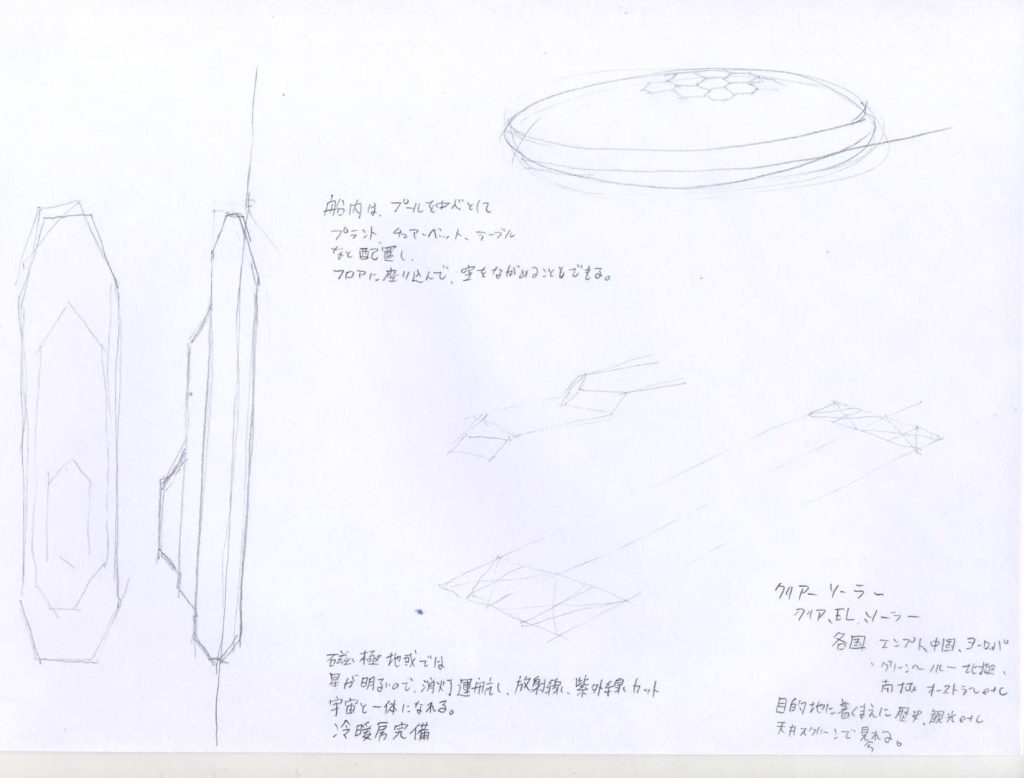 船内は、プールを中心として
プラント チェアーベット、テーブル
など配置し、
フロアに座り込んで、空をながめることもできる。
磁極地域では
星が明るいので、消灯運航し、放射線、紫外線カット
宇宙と一体になれる。
冷暖房完備
クリアー ソーラー
クリア、EL、ソーラー
各国 エジプト、中国、ヨーロッパ
、グリーン 北極、
南極 オーストラ etc
目的地に着くまえに歴史、観光etc
天井スクリーンで見れる。